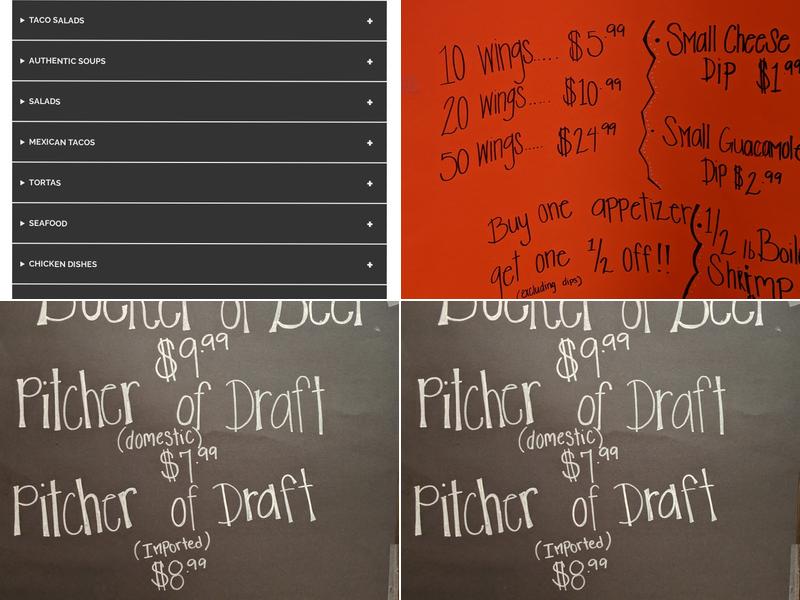 TACO SALADS
AUTHENTIC SOUPS
SALADS
MEXICAN TACOS
TORTAS
SEAFOOD
CHICKEN DISHES
10 wings..... $5.99
20 wings..... $10.99
50 wings..... $24.99
Small Cheese
Dip $1.99
Small Guacamole
Dip $2.99
Buy one appetizer
get one 1/2 off!!
(excluding dips)
1/2 lb Boil
Shrimp
Bucket of Beer
$9.99
Pitcher of Draft
(domestic)
$7.99
Pitcher of Draft
(Imported)
$8.99
Bucket of Beer
$9.99
Pitcher of Draft
(domestic)
$7.99
Pitcher of Draft
(Imported)
$8.99